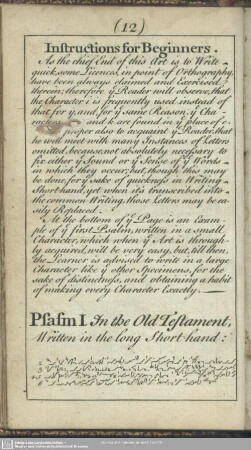 (12)
Instructions for Beginners.
As the chief End of this Art is to Write
quick, some Licences, in point of Orthography,
have been always claimed and Exercised
therein; therefore ye Reader will observe, that
the Character i is frequently used instead of
that for y, and for ye same Reason, ye Cha-
racters and k are found in ye place of c.
proper also to acquaint ye Reader, that
he will meet with many Instances of Letters
omitted, because not absolutely necessary to
fix either ye Sound or ye Sense of ye Words
in which they occur; but, though this may
be done for ye sake of quickness in Writing
Shorthand, yet when it's transcribed into
the common Writing, those Letters may be ea-
sily Replaced.
At the bottom of ye Page is an Exam-
ple of ye first Psalm, written in a small
Character, which when ye Art is through-
ly acquired, will be very easy, but, till then,
the Learner is advised to write in a large
Character like ye other Specimens, for the
sake of distinctness, and obtaining a habit
of making every Character Exactly.
Psalm I. In the Old Testament,
Written in the long Short-hand: